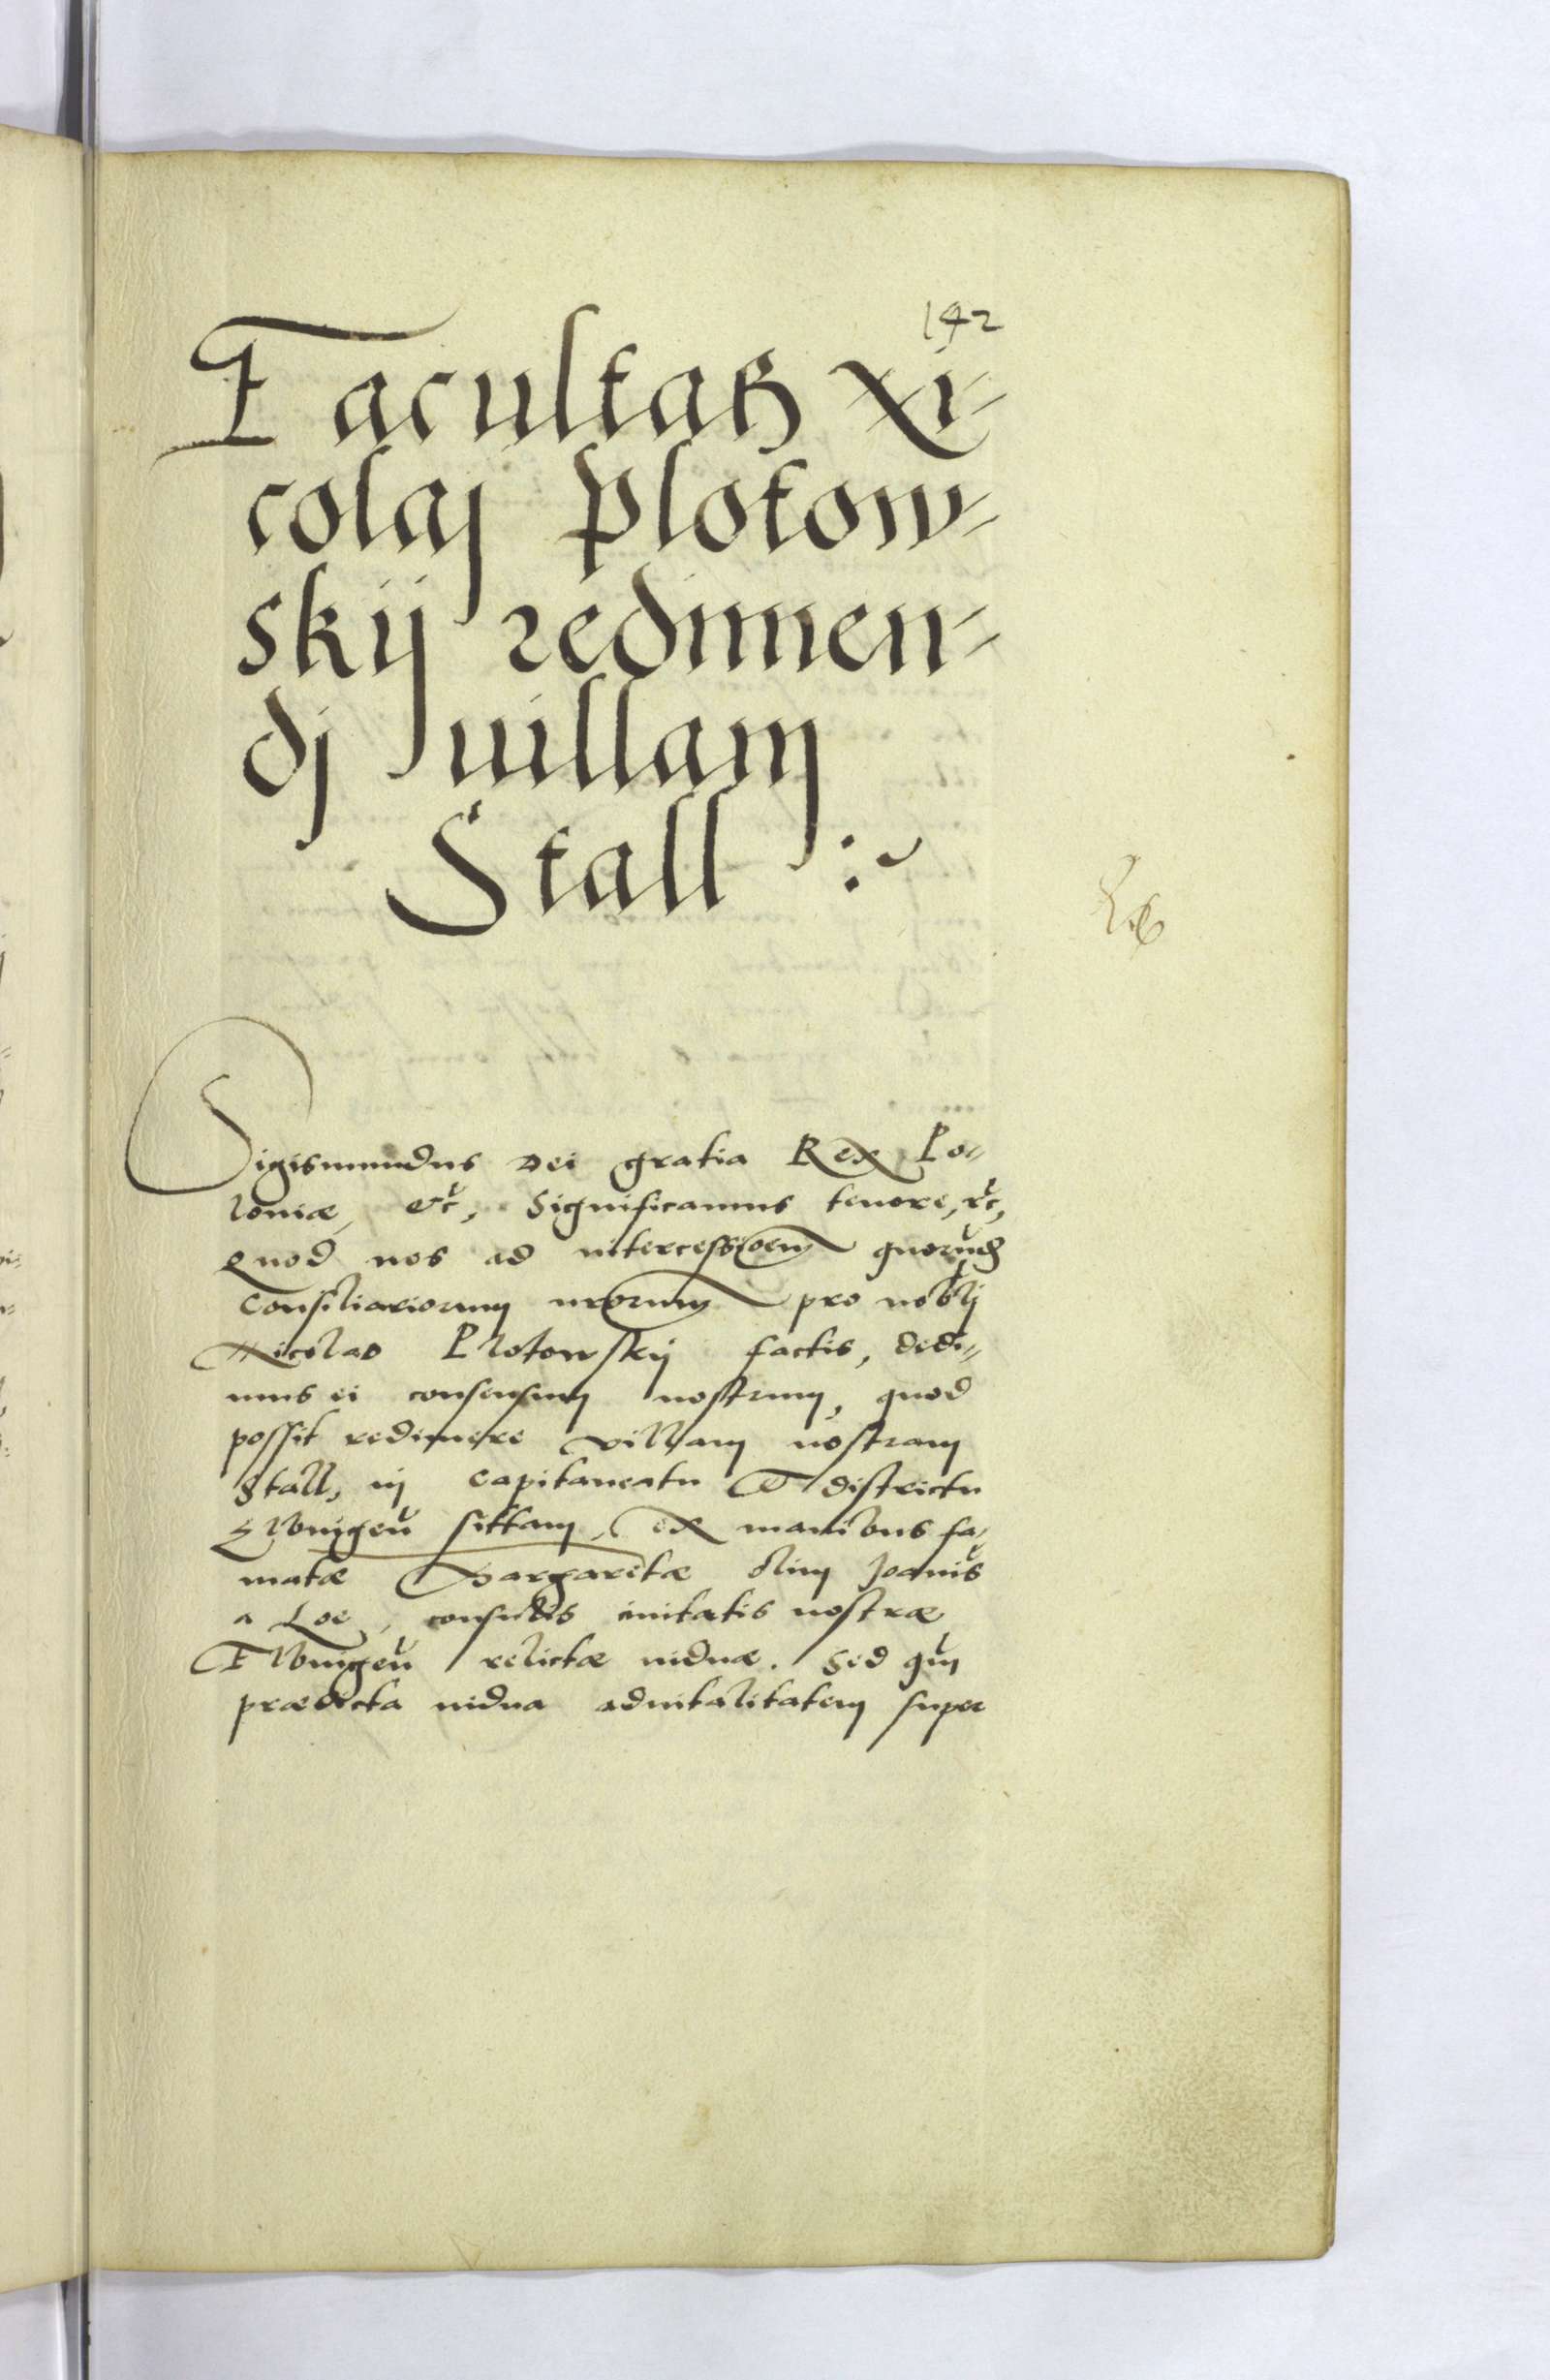 142
Facultas Ni-
colaj Plotow-
skij redimen-
dj uillam
Stall :~
Sigismundus Dei gratia Rex Po-
loniæ, etc̃, Significamus tenore, ꝛc̃,
Quod nos ad intercessioem quorũd
Consiliariorum nrorum pro nobli
Nicolao Plotowskij factis, dedi-
mus ei consensum nostrum, quod
possit redimere villam nostram
Stall, in Capitaneatu et districtu
Elbingeñ sittam, ex manibus fa-
matæ Margaretæ olim Joanñis
a Loe, consulis ciuitatis nostræ
Elbingeñ relictæ uiduæ. Sed qm̃
prædicta uidua aduitalitatem super